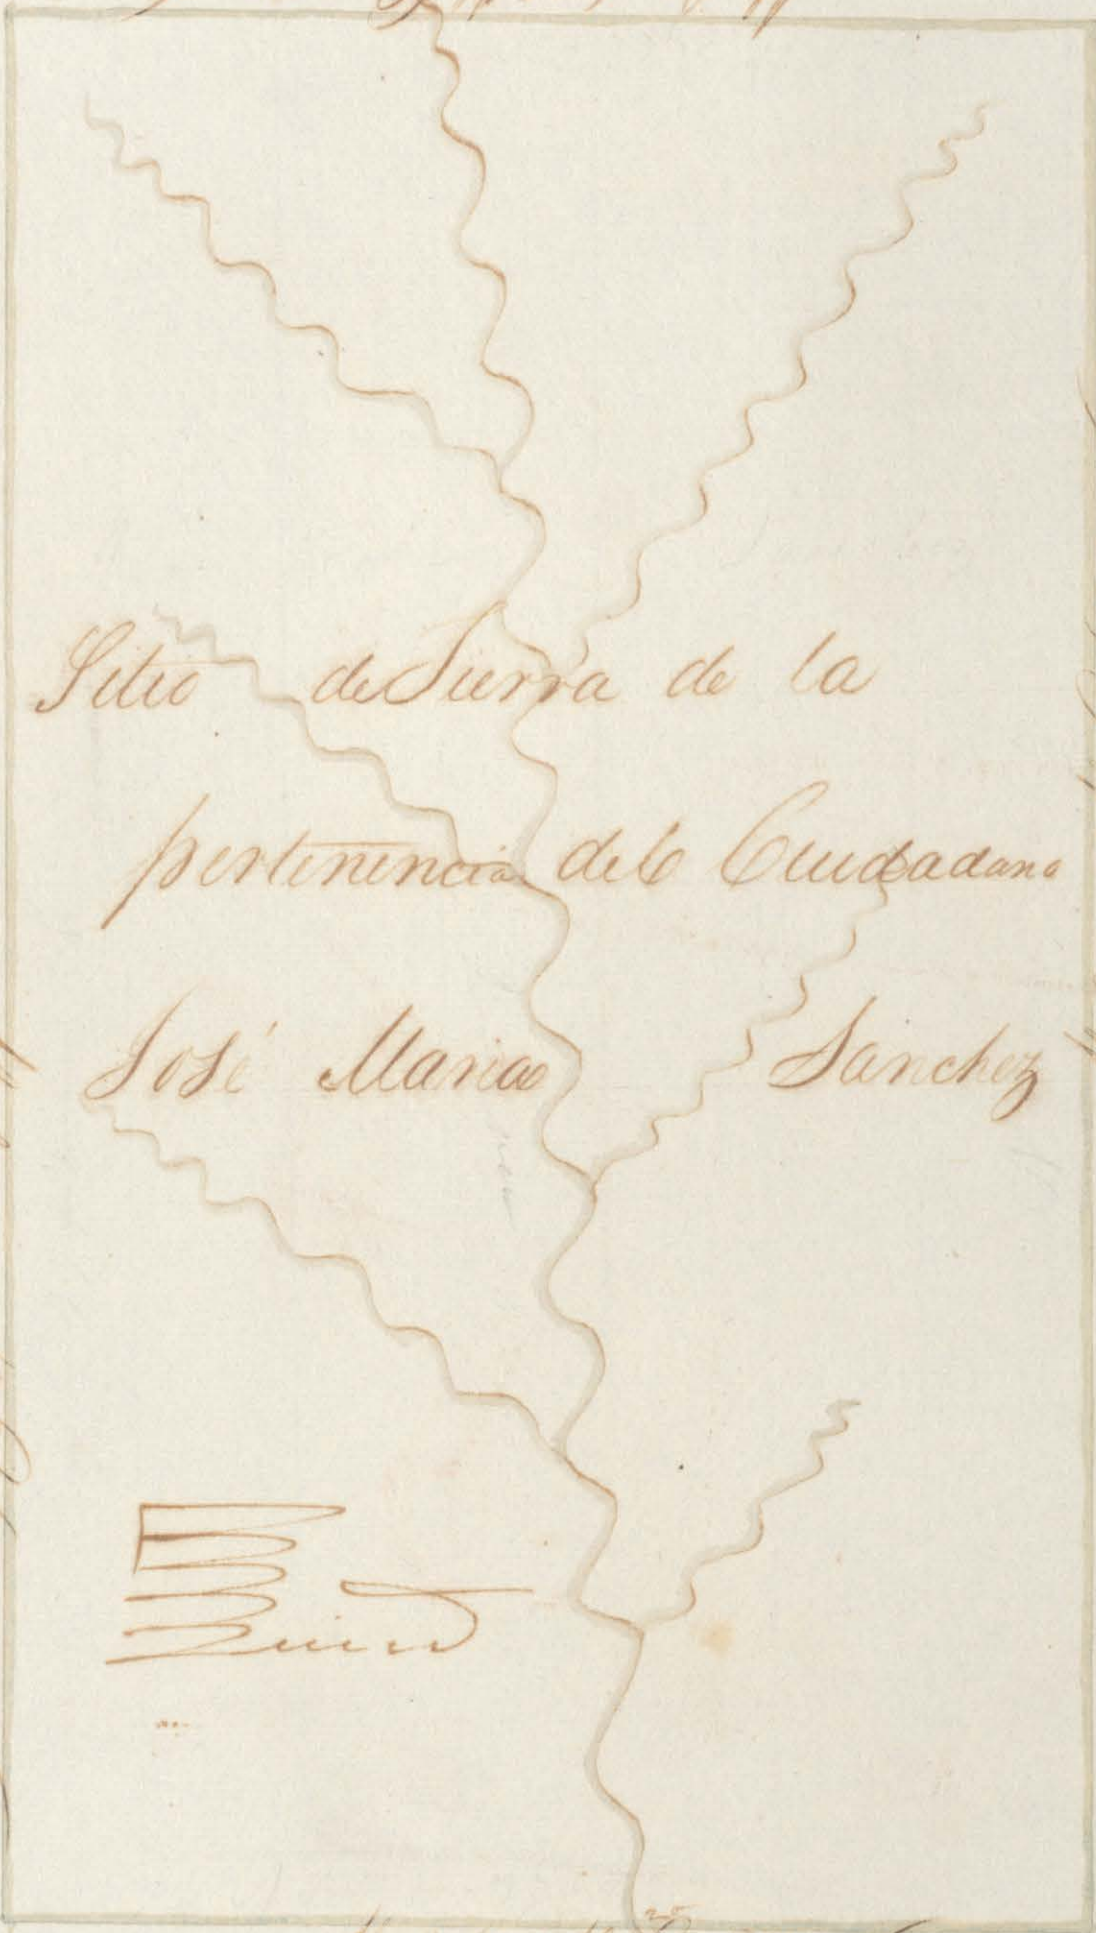 Sitio de Sierra de la
pertinencia del Ciudadano
José Maria Sanchez